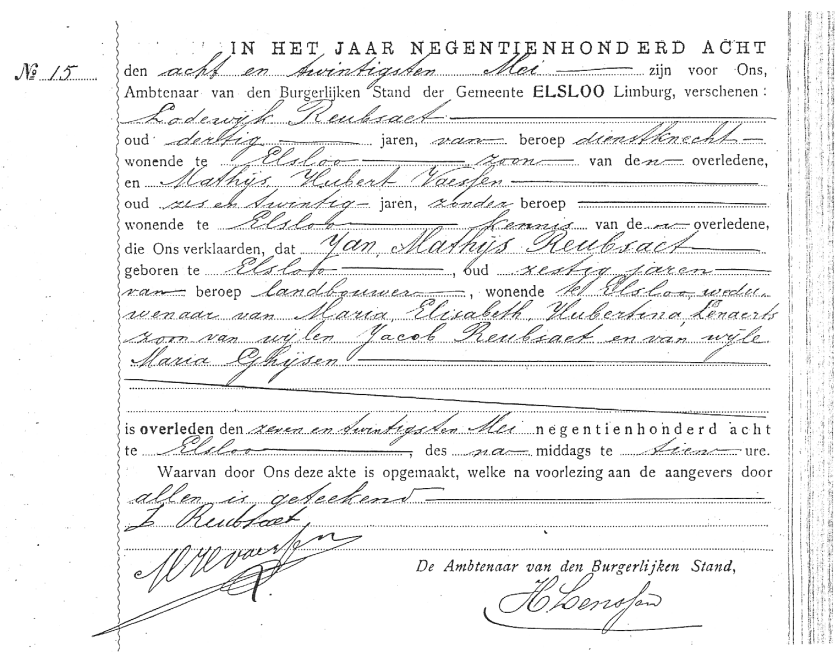 IN HET JAAR NEGENTIENHONDERD ACHT
№ 15
den acht en twintigsten Mei zijn voor Ons,
Ambtenaar van den Burgerlijken Stand der Gemeente ELSLOO Limburg, verschenen:
Lodewijk Reubsaet
oud dertig jaren, van beroep dienstknecht
wonende te Elsloo zoon van den overledene,
en Mathijs Hubert Vaessen
oud zes en twintig jaren, zonder beroep
wonende te Elsloo kennis van den overledene,
die Ons verklaarden, dat Jan Mathijs Reubsaet
geboren te Elsloo, oud zestig jaren
van beroep landbouwer, wonende te Elsloo, wedu-
wenaar van Maria, Elisabeth, Hubertina, Lenaerts
zoon van wijlen Jacob Reubsaet en van wijle
Maria Ghijsen
is overleden den zeven en twintigsten Mei negentienhonderd acht
te Elsloo, des na middags te tien ure.
Waarvan door Ons deze akte is opgemaakt, welke na voorlezing aan de aangevers door
allen is geteekend
L Reubsaet
M H Vaessen
De Ambtenaar van den Burgerlijken Stand,
H Lenssen